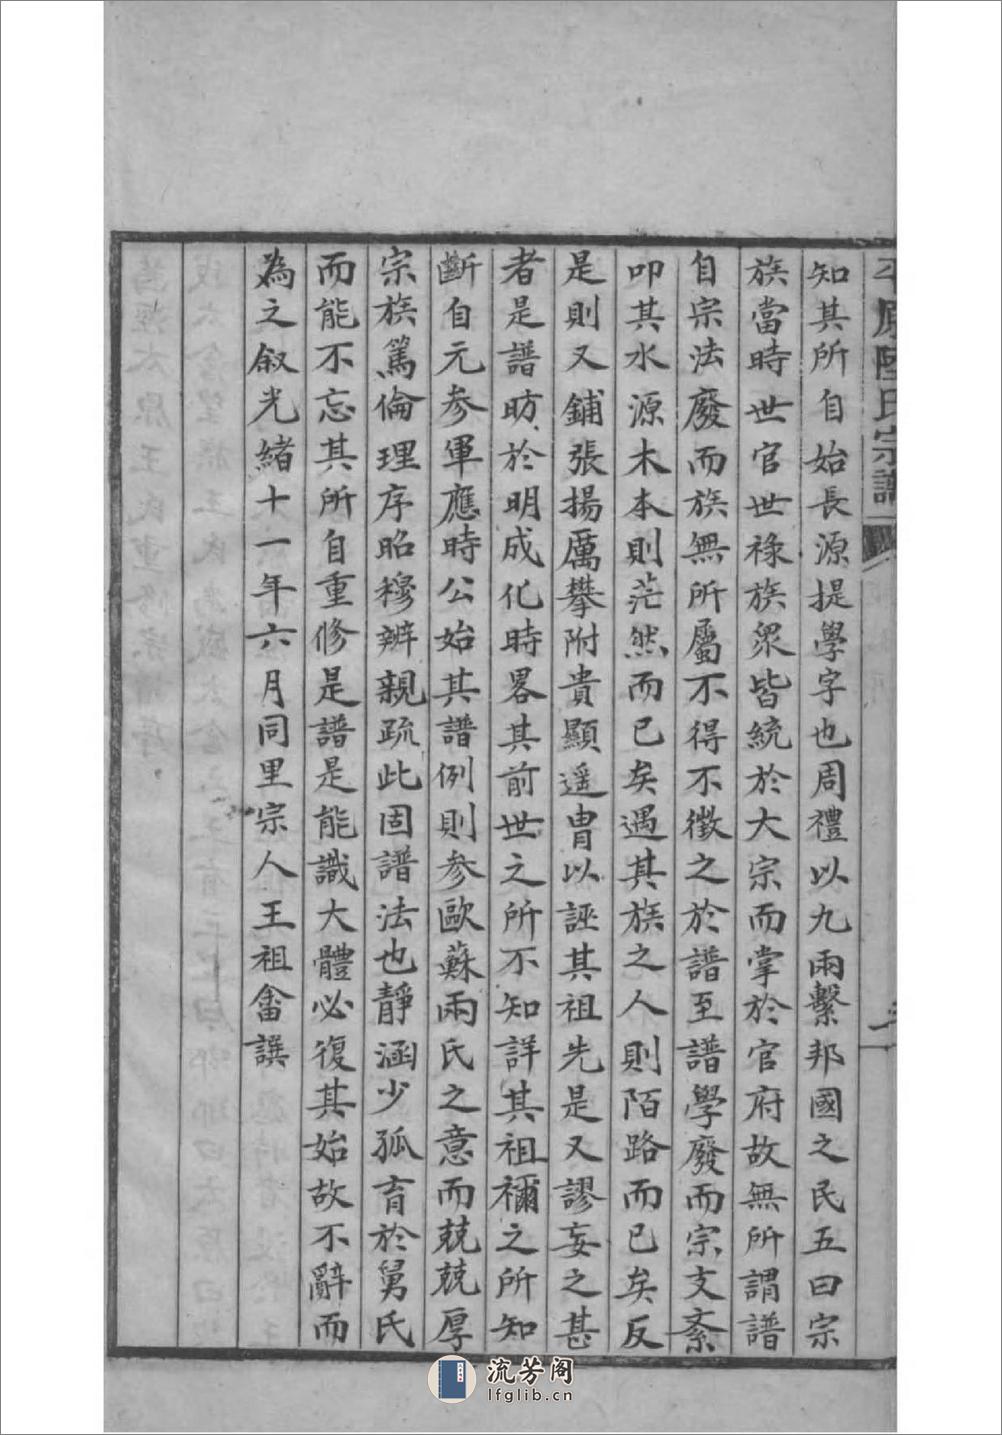 平原陸氏宗譜
知其所自始長源提學字也周禮以九兩繫邦國之民五曰宗
族當時世官世祿族眾皆統於大宗而掌於官府故無所謂譜
自宗法廢而族無所屬不得不徵之於譜至譜學廢而宗支紊
叩其水源木本則茫然而已矣遇其族之人則陌路而已矣反
是則又鋪張揚厲攀附貴顯遥胄以誣其祖先是又謬妄之甚
者是譜昉於明成化時畧其前世之所不知詳其祖禰之所知
斷自元參軍應時公始其譜例則參歐蘇兩氏之意而兢兢厚
宗族篤倫理序昭穆辨親疏此固譜法也靜涵少孤育於舅氏
而能不忘其所自重修是譜是能識大體必復其始故不辭而
為之叙光緒十一年六月同里宗人王祖畬譔
流芳阁
lfglib.cn